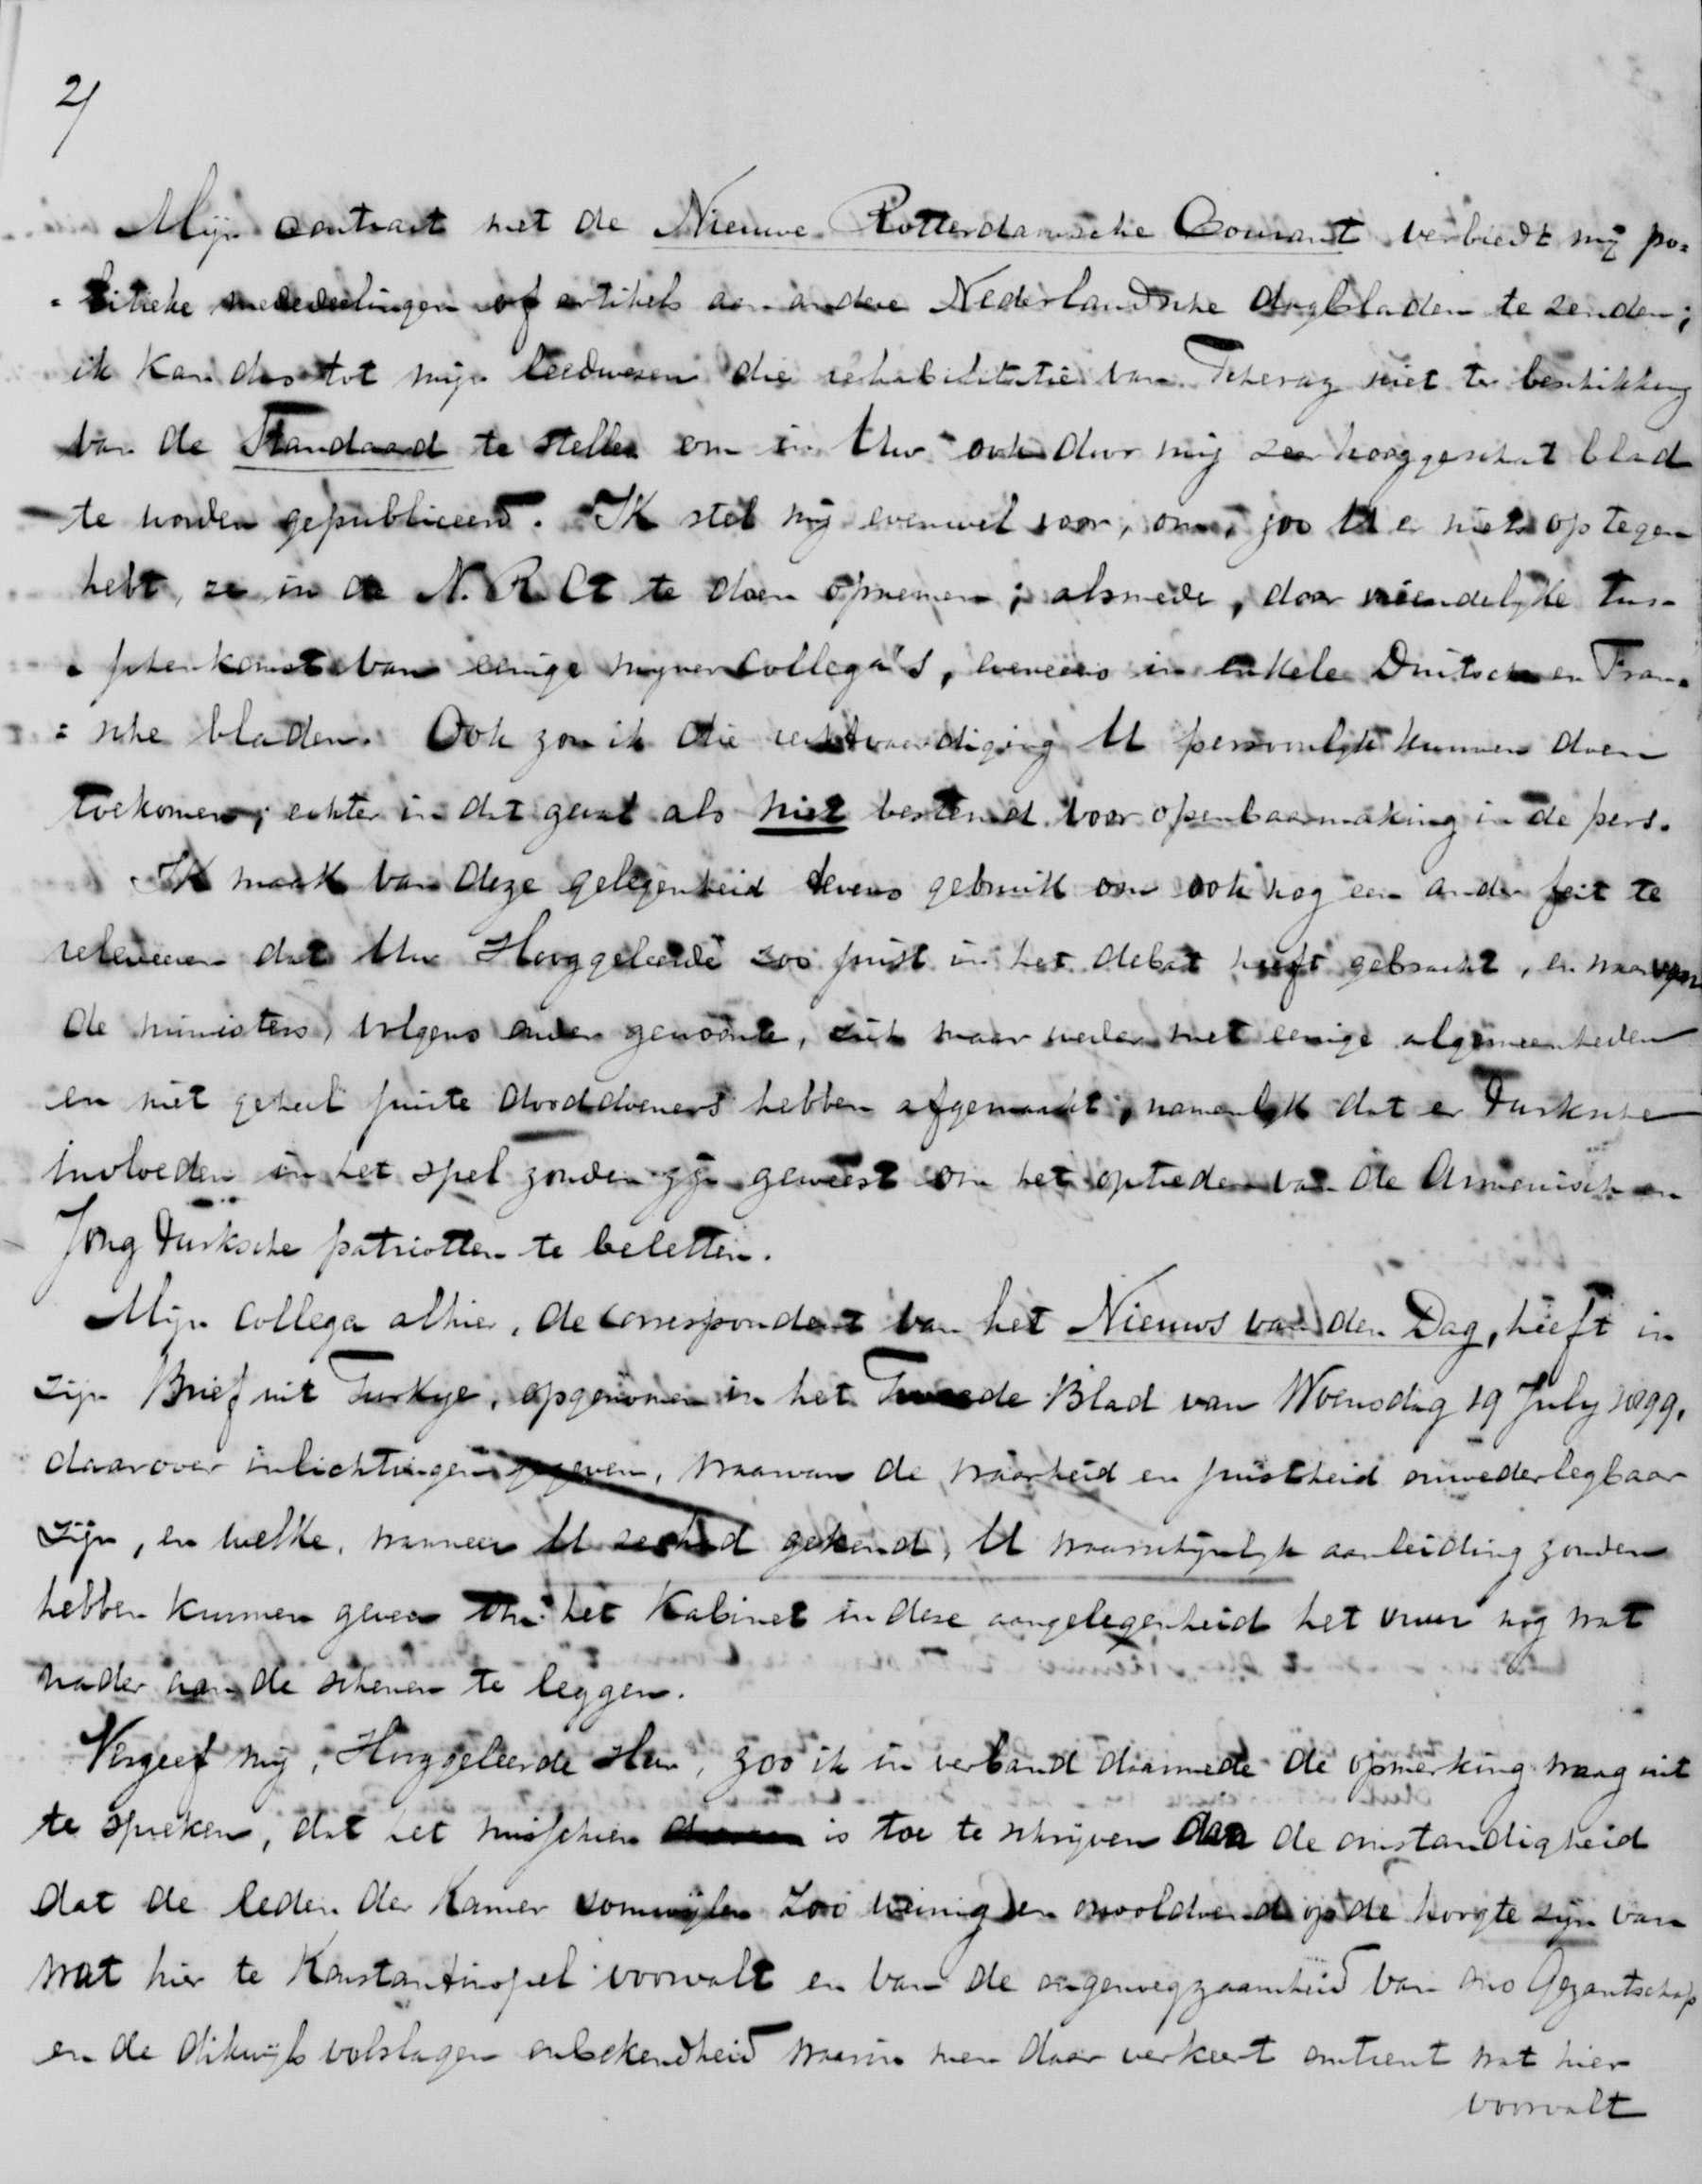 2/
Mijn contract met de Nieuwe Rotterdamsche Courant verbiedt mij po=
=litieke mededeelingen of artikels aan andere Nederlandsche dagbladen te zenden;
ik kan dus tot mijn leedwezen die rehabilitatie van Tcheraz niet ter beschikking
van de Standaard te stellen om in Uw ook door mij zeer hooggeschat blad
te worden gepubliceerd. Ik stel mij evenwel voor, om, zoo U er niets op tegen
hebt, ze in de N. R. Ct te doen opnemen; alsmede, door vriendelijke tus=
=schenkomst van eenige mijner Collega's, eveneens in enkele Duitsche en Fran=
=sche bladen. Ook zou ik die rechtvaardiging U persoonlijk kunnen doen
toekomen; echter in dat geval als niet bestemd voor openbaarmaking in de pers.
Ik maak van deze gelegenheid tevens gebruik om ook nog een ander feit te
releveeren dat Uw Hooggeleerde zoo juist in het debat heeft gebracht, en waarvan
de ministers, volgens ouder gewoonte, zich maar weder met eenige algemeenheden
en niet geheel juiste dooddoeners hebben afgemaakt; namelijk dat er Turksche
invloeden in het spel zouden zijn geweest om het optreden van de Armenische en
Jong Turksche patriotten te beletten.
Mijn Collega alhier, de correspondent van het Nieuws van den Dag, heeft in
zijn Brief uit Turkije, opgenomen in het Tweede Blad van Woensdag 19 July 1899,
daarover inlichtingen gegeven, waarvan de waarheid en juistheid onwederlegbaar
zijn, en welke, wanneer U ze had gekend, U waarschijnlijk aanleiding zouden
hebben kunnen geven om het Kabinet in deze aangelegenheid het vuur nog wat
nader aan de schenen te leggen.
Vergeef mij, Hooggeleerde Heer, zoo ik in verband daarmede de opmerking waag uit
te spreken, dat het misschien is toe te schrijven aan de omstandigheid
dat de leden der Kamer somwijlen zoo weinig en onvoldoend op de hoogte zijn van
wat hier te Konstantinopel voorvalt en van de ongenoegzaamheid van ons Gezantschap
en de dikwijls volslagen onbekendheid waarin men daar verkeert omtrent wat hier
voorvalt